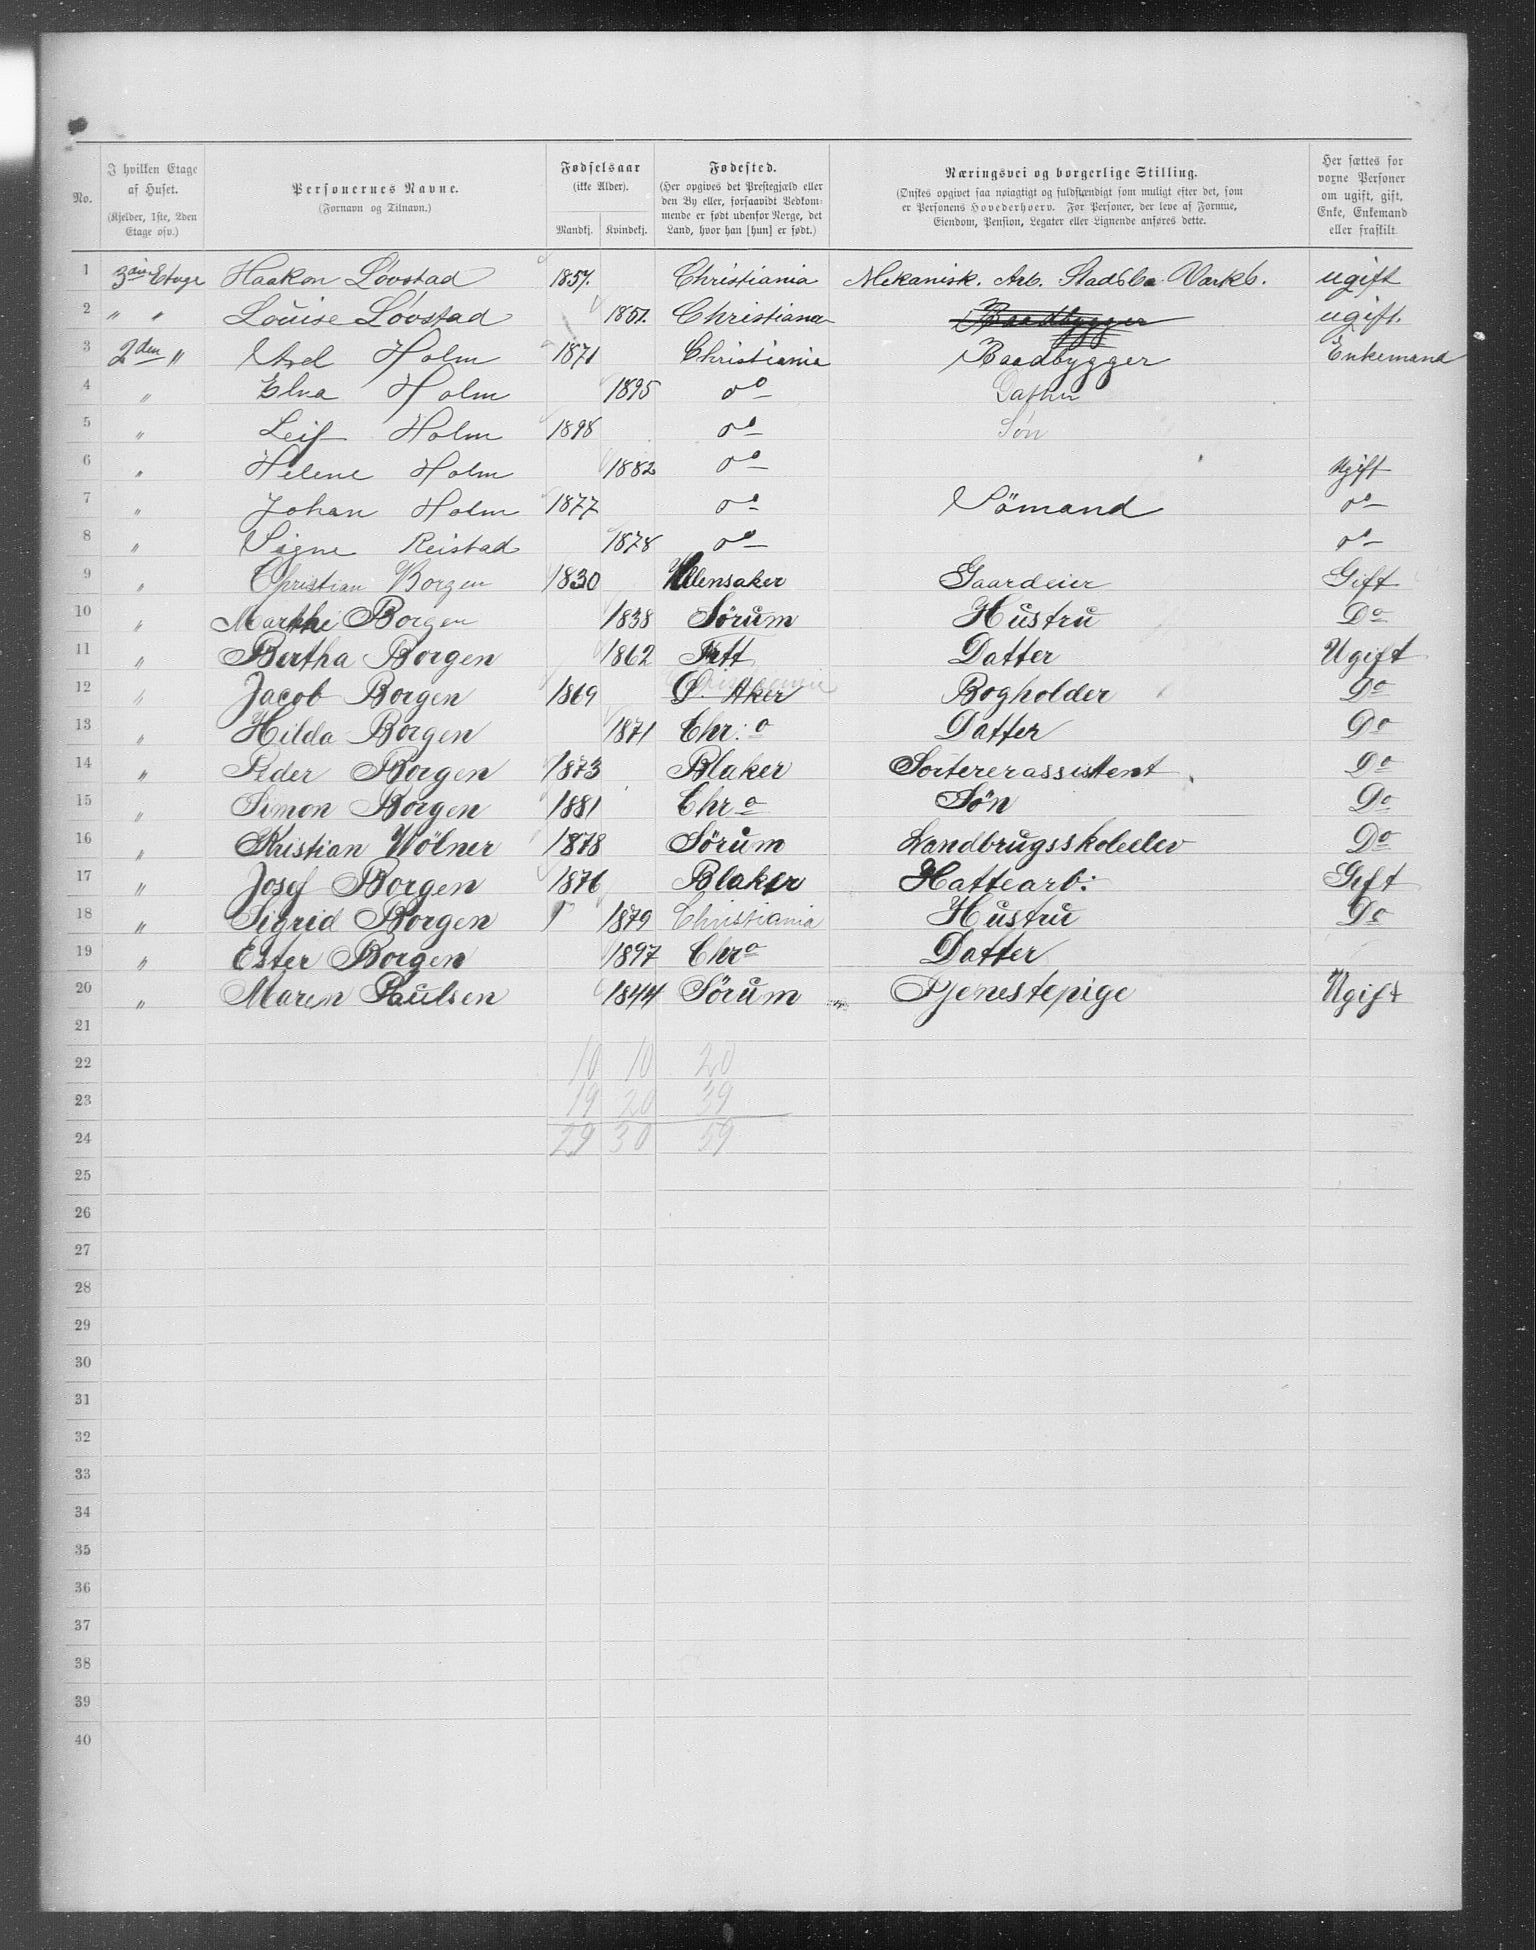 No. | I hvilken Etage af Huset. (Kjelder, 1ste, 2den Etage osv.) | Personernes Navne. (Fornavn og Tilnavn.) | Fødselsaar (ikke Alder). Mandkj. Kvindekj. | Fødested. (Her opgives det Prestegjæld eller den By eller, forsaavidt Vedkommende er født udenfor Norge, det Land, hvor han [hun] er født.) | Næringsvei og borgerlige Stilling. (Ønskes opgivet saa nøiagtigt og fuldstændigt som muligt efter det, som er Personens Hovederhverv. For Personer, der leve af Formue, Eiendom, Pension, Legater eller Lignende anføres dette. | Her sættes for voxne Personer om ugift, gift, Enke, Enkemand eller fraskilt.
1 3die Etage Haakon Løvstad 1857. Christiania Mekanisk. Arb. Stadsba Værks. ugift
2 " " Louise Løvstad 1851. Christiania Baadbygger ugift.
3 2den " Axel Holm 1871 Christiania Baadbygger Enkemand
4 " Elna Holm 1895 do Datter
5 " Leif Holm 1898 do Søn
6 " Helene Holm 1882 do Ugift
7 " Johan Holm 1877 do Sömand do
8 " Signe Reistad 1878 do do
9 " Christian Borgen 1830 Ullensaker Gaardeier Gift
10 " Marthe Borgen 1838 Sørum Hustru Do
11 " Bertha Borgen 1862 Fett Datter Ugift
12 " Jacob Borgen 1869 Ø. Aker Christiania Bogholder Do
13 " Hilda Borgen 1871 Chr:a Datter Do
14 " Peder Borgen 1873 Blaker Sortererassistent Do
15 " Simon Borgen 1881 Chra Søn Do
16 " Kristian Wölner 1878 Sørum Landbrugsskoleelev Do
17 " Josef Borgen 1876 Blaker Hattearb: Gift
18 " Sigrid Borgen 1879 Christiania Hustru Do
19 " Ester Borgen 1897 Chra Datter
20 " Maren Paulsen 1844 Sørum Tjenestepige Ugift
21
22 10 10 20
23 19 20 39
24 29 30 59
25
26
27
28
29
30
31
32
33
34
35
36
37
38
39
40